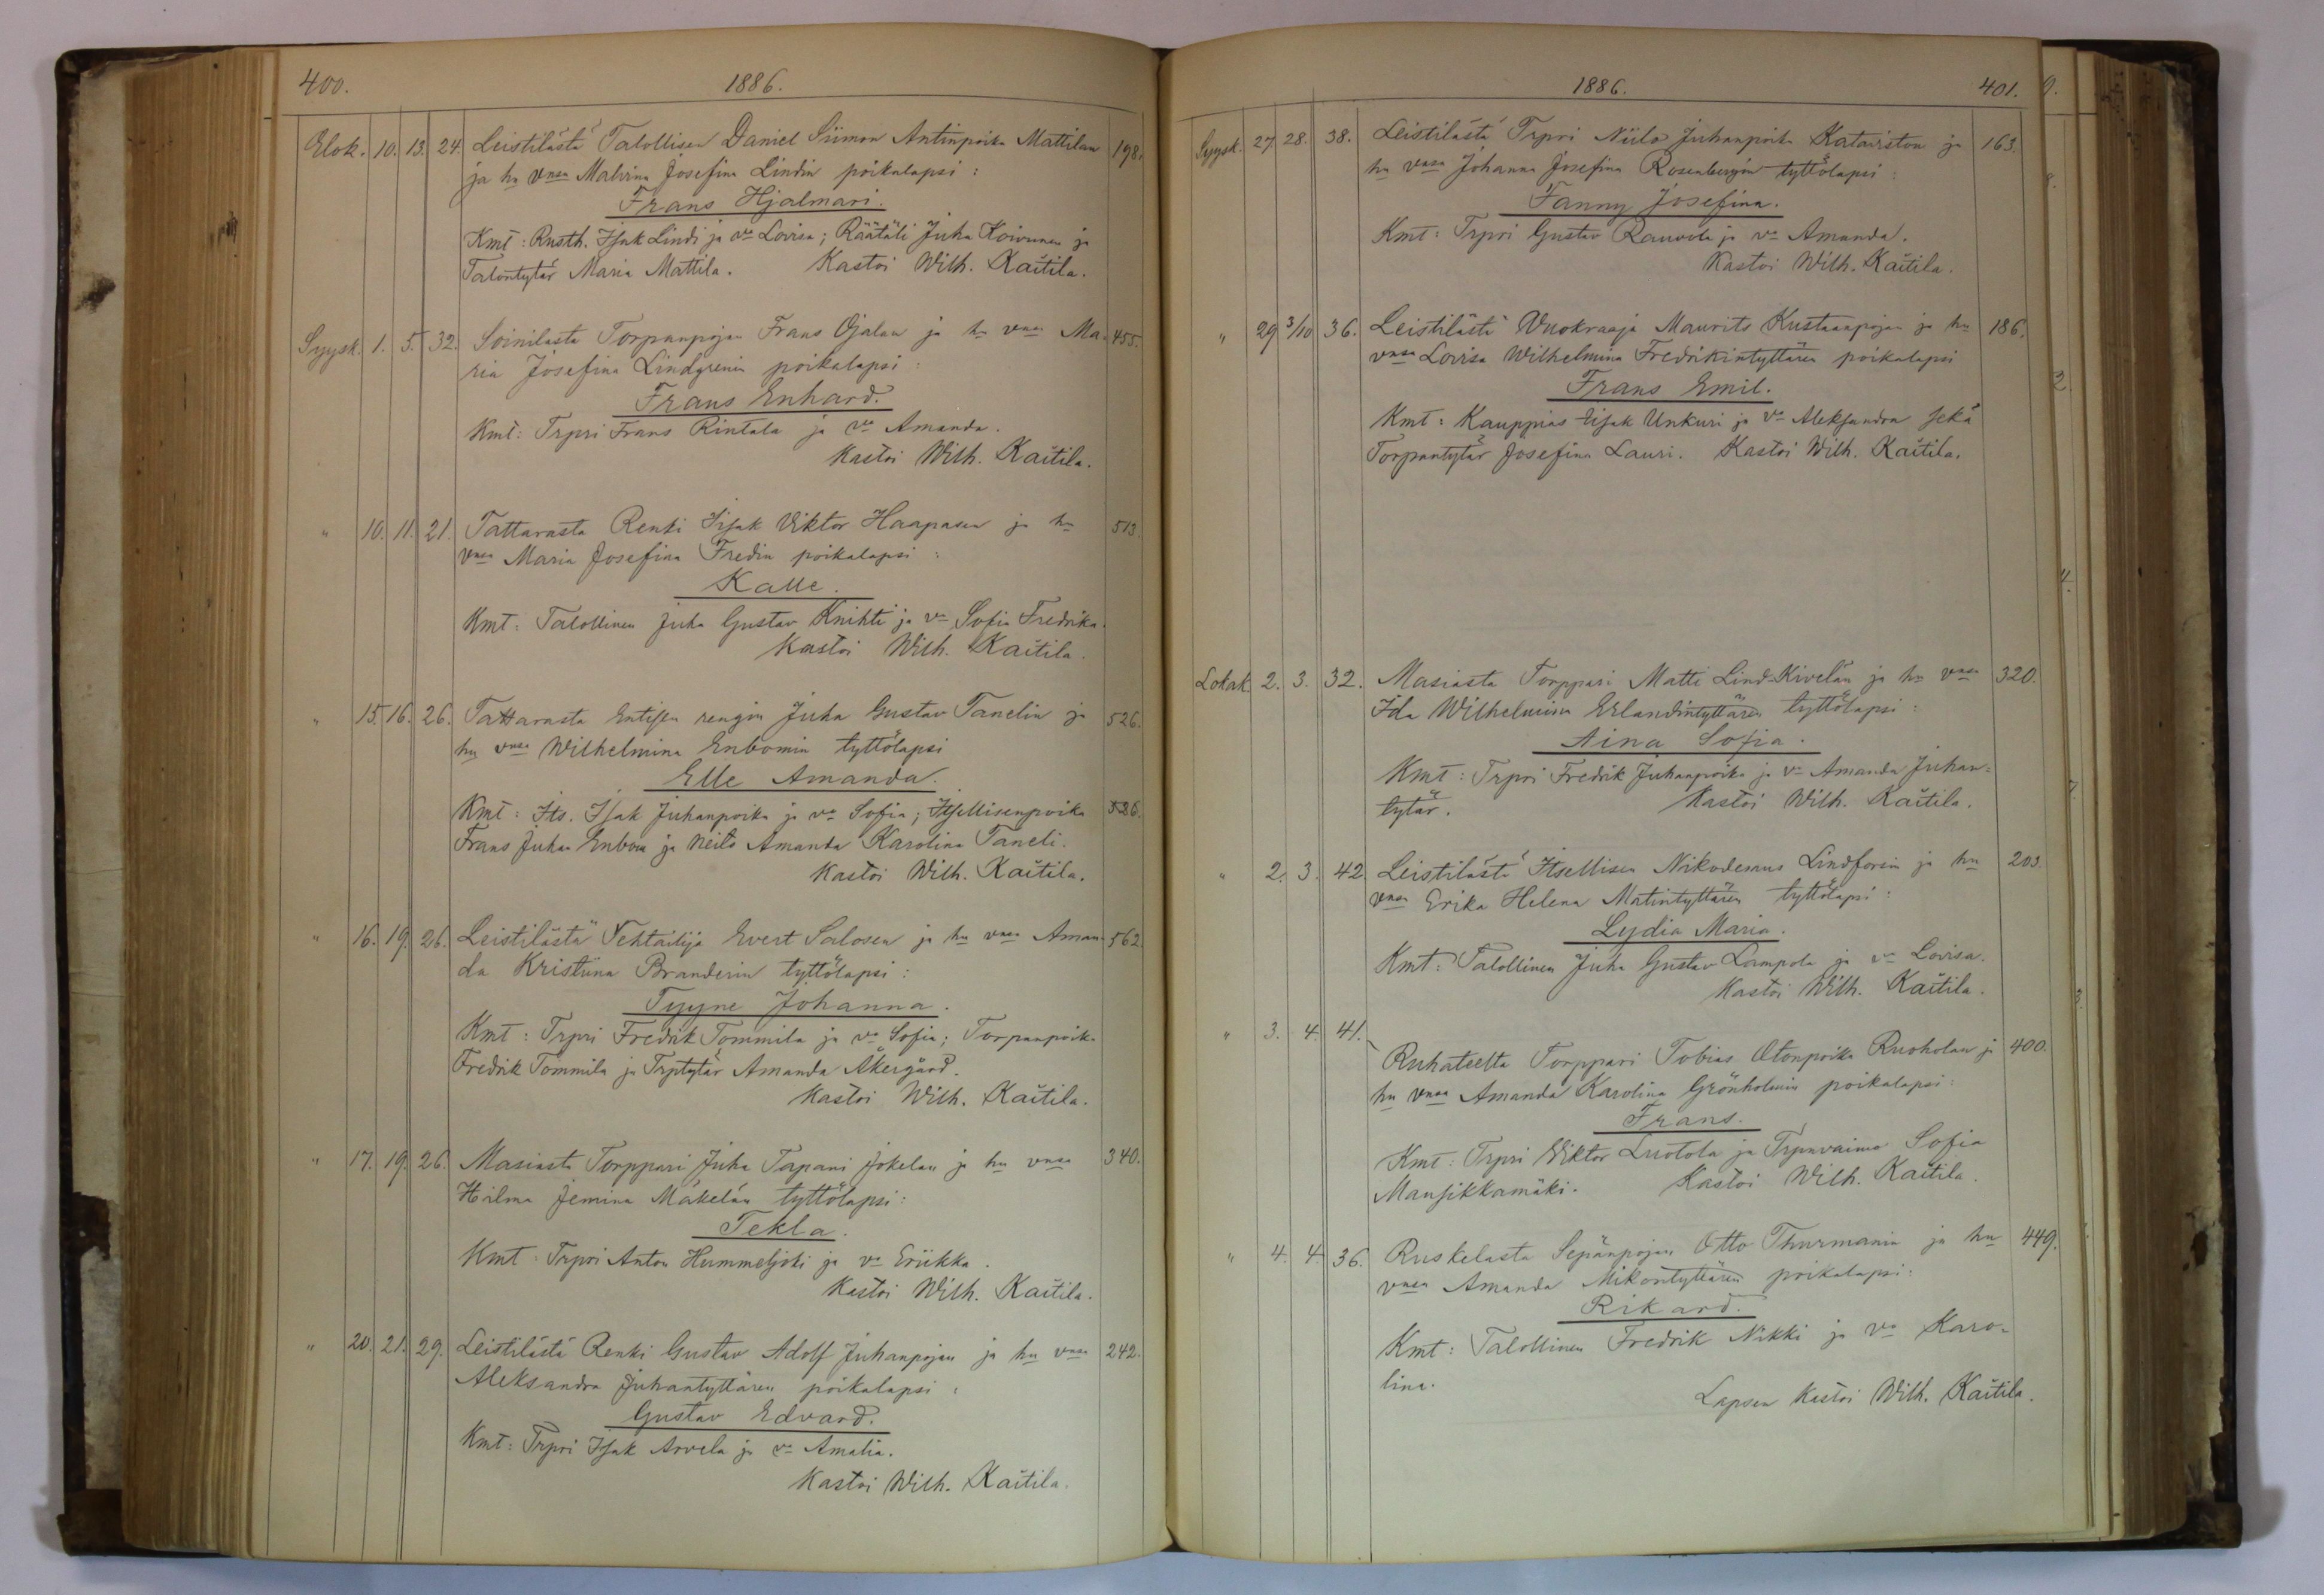 400. 1886.
Elok. 10. 13. 24. Leistilästä Talollisen Daniel Siimon Antinpoika Mattilan 198.
ja hn vnsa Malvina Josefina Lindin poikalapsi:
Frans Hjalmari.
Kmt: Rusth. Isak Lindi ja vo Lovisa; Räätäli Juha Koivunen ja
Talontytär Maria Mattila. Kastoi Wilh. Kaitila.
Syysk. 1. 5. 32. Soinilasta Torpanpojan Frans Ojalan ja hn vnsa Ma- 455.
ria Josefina Lindgrenin poikalapsi:
Frans Enhard.
Kmt: Trpri Frans Rintala ja vo Amanda.
Kastoi Wilh. Kaitila.
" 10. 11. 21. Tattarasta Renki Iisak Viktor Haapasen ja hn 513.
vnsa Maria Josefina Fredin poikalapsi:
Kalle.
Kmt: Talollinen Juha Gustav Knihti ja vo Sofia Fredrika.
Kastoi Wilh. Kaitila.
" 15. 16. 26. Tattarasta Entisen rengin Juha Gustav Tanelin ja 526.
hn vnsa Wilhelmina Enbomin tyttölapsi
Elle Amanda.
Kmt: Its. Isak Juhanpoika ja vo Sofia; Itsellisenpoika 526.
Frans Juhan Enbom ja Neito Amanda Karolina Taneli.
Kastoi Wilh. Kaitila.
" 16. 19. 26. Leistilästä Tehtailija Evert Salosen ja hn vnsa Aman- 562.
da Kristiina Branderin tyttölapsi:
Tyyne Johanna.
Kmt: Trpri Fredrik Tommila ja vo Sofia; Torpanpoika
Fredrik Tommila ja Trptytär Amanda Åkergård.
Kastoi Wilh. Kaitila.
" 17. 19. 26. Masiasta Torppari Juha Tapani Jokelan ja hn vnsa 340.
Hilma Jemina Mäkelän tyttölapsi:
Tekla.
Kmt: Trpri Anton Hummeljoki ja vo Eriikka.
Kastoi Wilh. Kaitila.
" 20. 21. 29. Leistilästä Renki Gustav Adolf Juhanpojan ja hn vnsa 242.
Aleksandra Juhantyttären poikalapsi:
Gustav Edvard.
Kmt: Trpri Isak Arvela ja vo Amalia.
Kastoi Wilh. Kaitila.
1886. 401.
Syysk. 27. 28. 38. Leistilästä Trpri Niilo Juhanpoika Katariston ja 163.
hn vnsa Johanna Josefina Rosenbergin tyttölapsi:
Fanny Josefina.
Kmt: Trpri Gustav Rauvola ja vo Amanda.
Kastoi Wilh. Kaitila.
" 29 3/10 36. Leistilästä Vuokraaja Maurits Kustaanpojan ja hn 186.
vnsa Lovisa Wilhelmina Fredrikintyttären poikalapsi
Frans Emil.
Kmt: Kauppias Iisak Unkuri ja vo Aleksandra sekä
Torpantytär Josefina Lauri. Kastoi Wilh. Kaitila.
Lokak. 2. 3. 32. Masiasta Torppari Matti Lind-Kivelän ja hn vnsa 320.
Ida Wilhelmina Erlandintyttären tyttölapsi:
Aina Sofia.
Kmt: Trpri Fredrik Juhanpoika ja vo Amanda Juhan-
tytär. Kastoi Wilh. Kaitila.
" 2. 3. 42. Leistilästä Itsellisen Nikodemus Lindforsin ja hn 203.
vnsa Erika Helena Matintyttären tyttölapsi:
Lydia Maria.
Kmt: Talollinen Juha Gustav Lampola ja vo Lovisa.
Kastoi Wilh. Kaitila.
" 3. 4. 41.
Ruhateelta Torppari Tobias Otonpoika Ruoholan ja 400.
hn vnsa Amanda Karolina Grönholmin poikalapsi:
Frans.
Kmt: Trpri Viktor Luotola ja Trpnvaimo Sofia
Mansikkamäki. Kastoi Wilh. Kaitila.
" 4. 4. 36. Ruskelasta Sepänpojan Otto Thurmanin ja hn 449.
vnsa Amanda Mikontyttären poikalapsi:
Rikard.
Kmt: Talollinen Fredrik Nikki ja vo Karo-
lina.
Lapsen Kastoi Wilh. Kaitila.